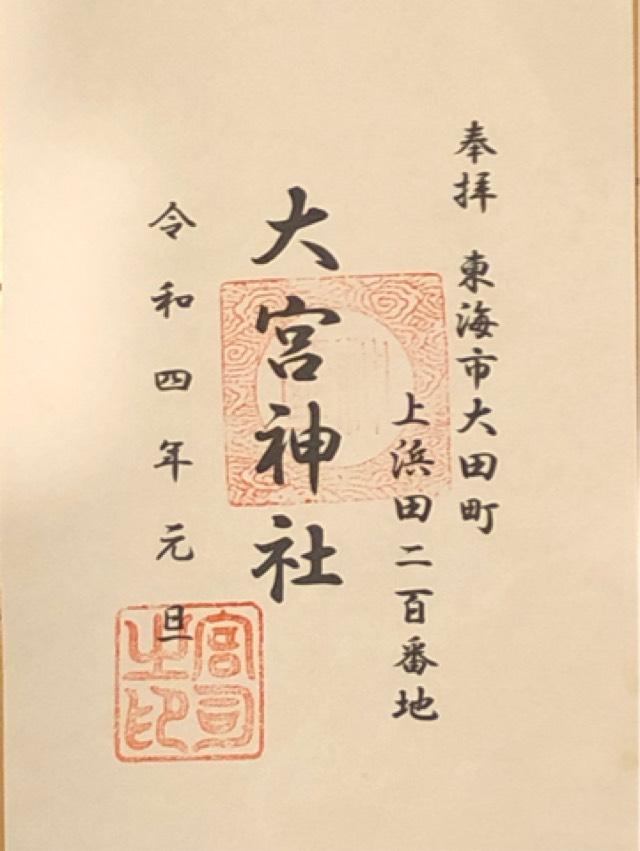 奉拝 東海市大田町
上浜田二百番地
大宮神社
令和四年元旦
宮司之印